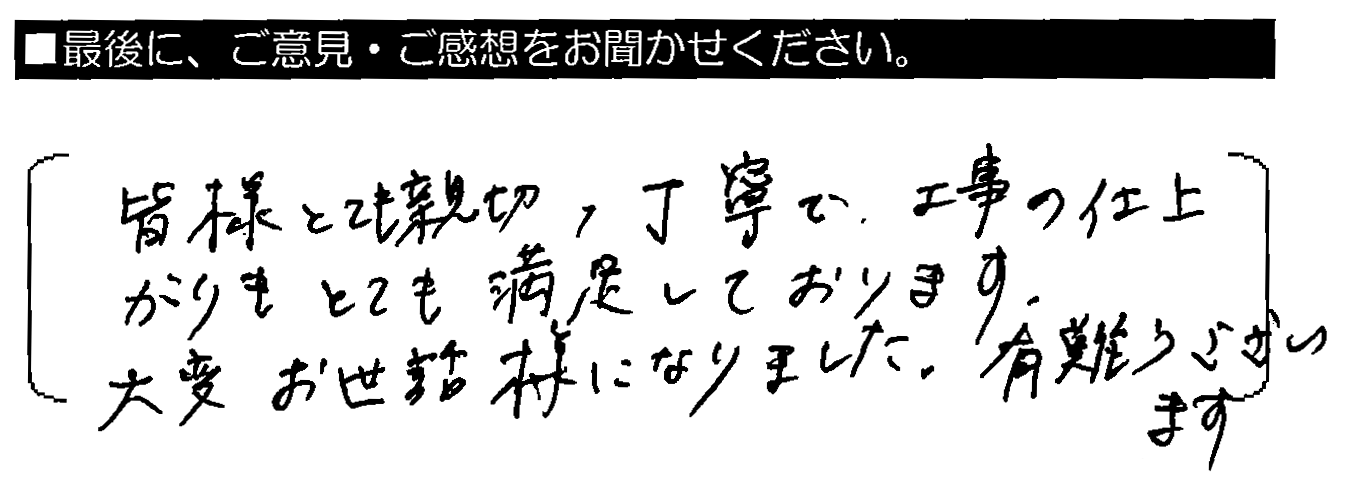 ■最後に、ご意見・ご感想をお聞かせください。
皆様とても親切、丁寧で、工事の仕上
がりもとても満足しております。
大変お世話様になりました。有難うござい
ます